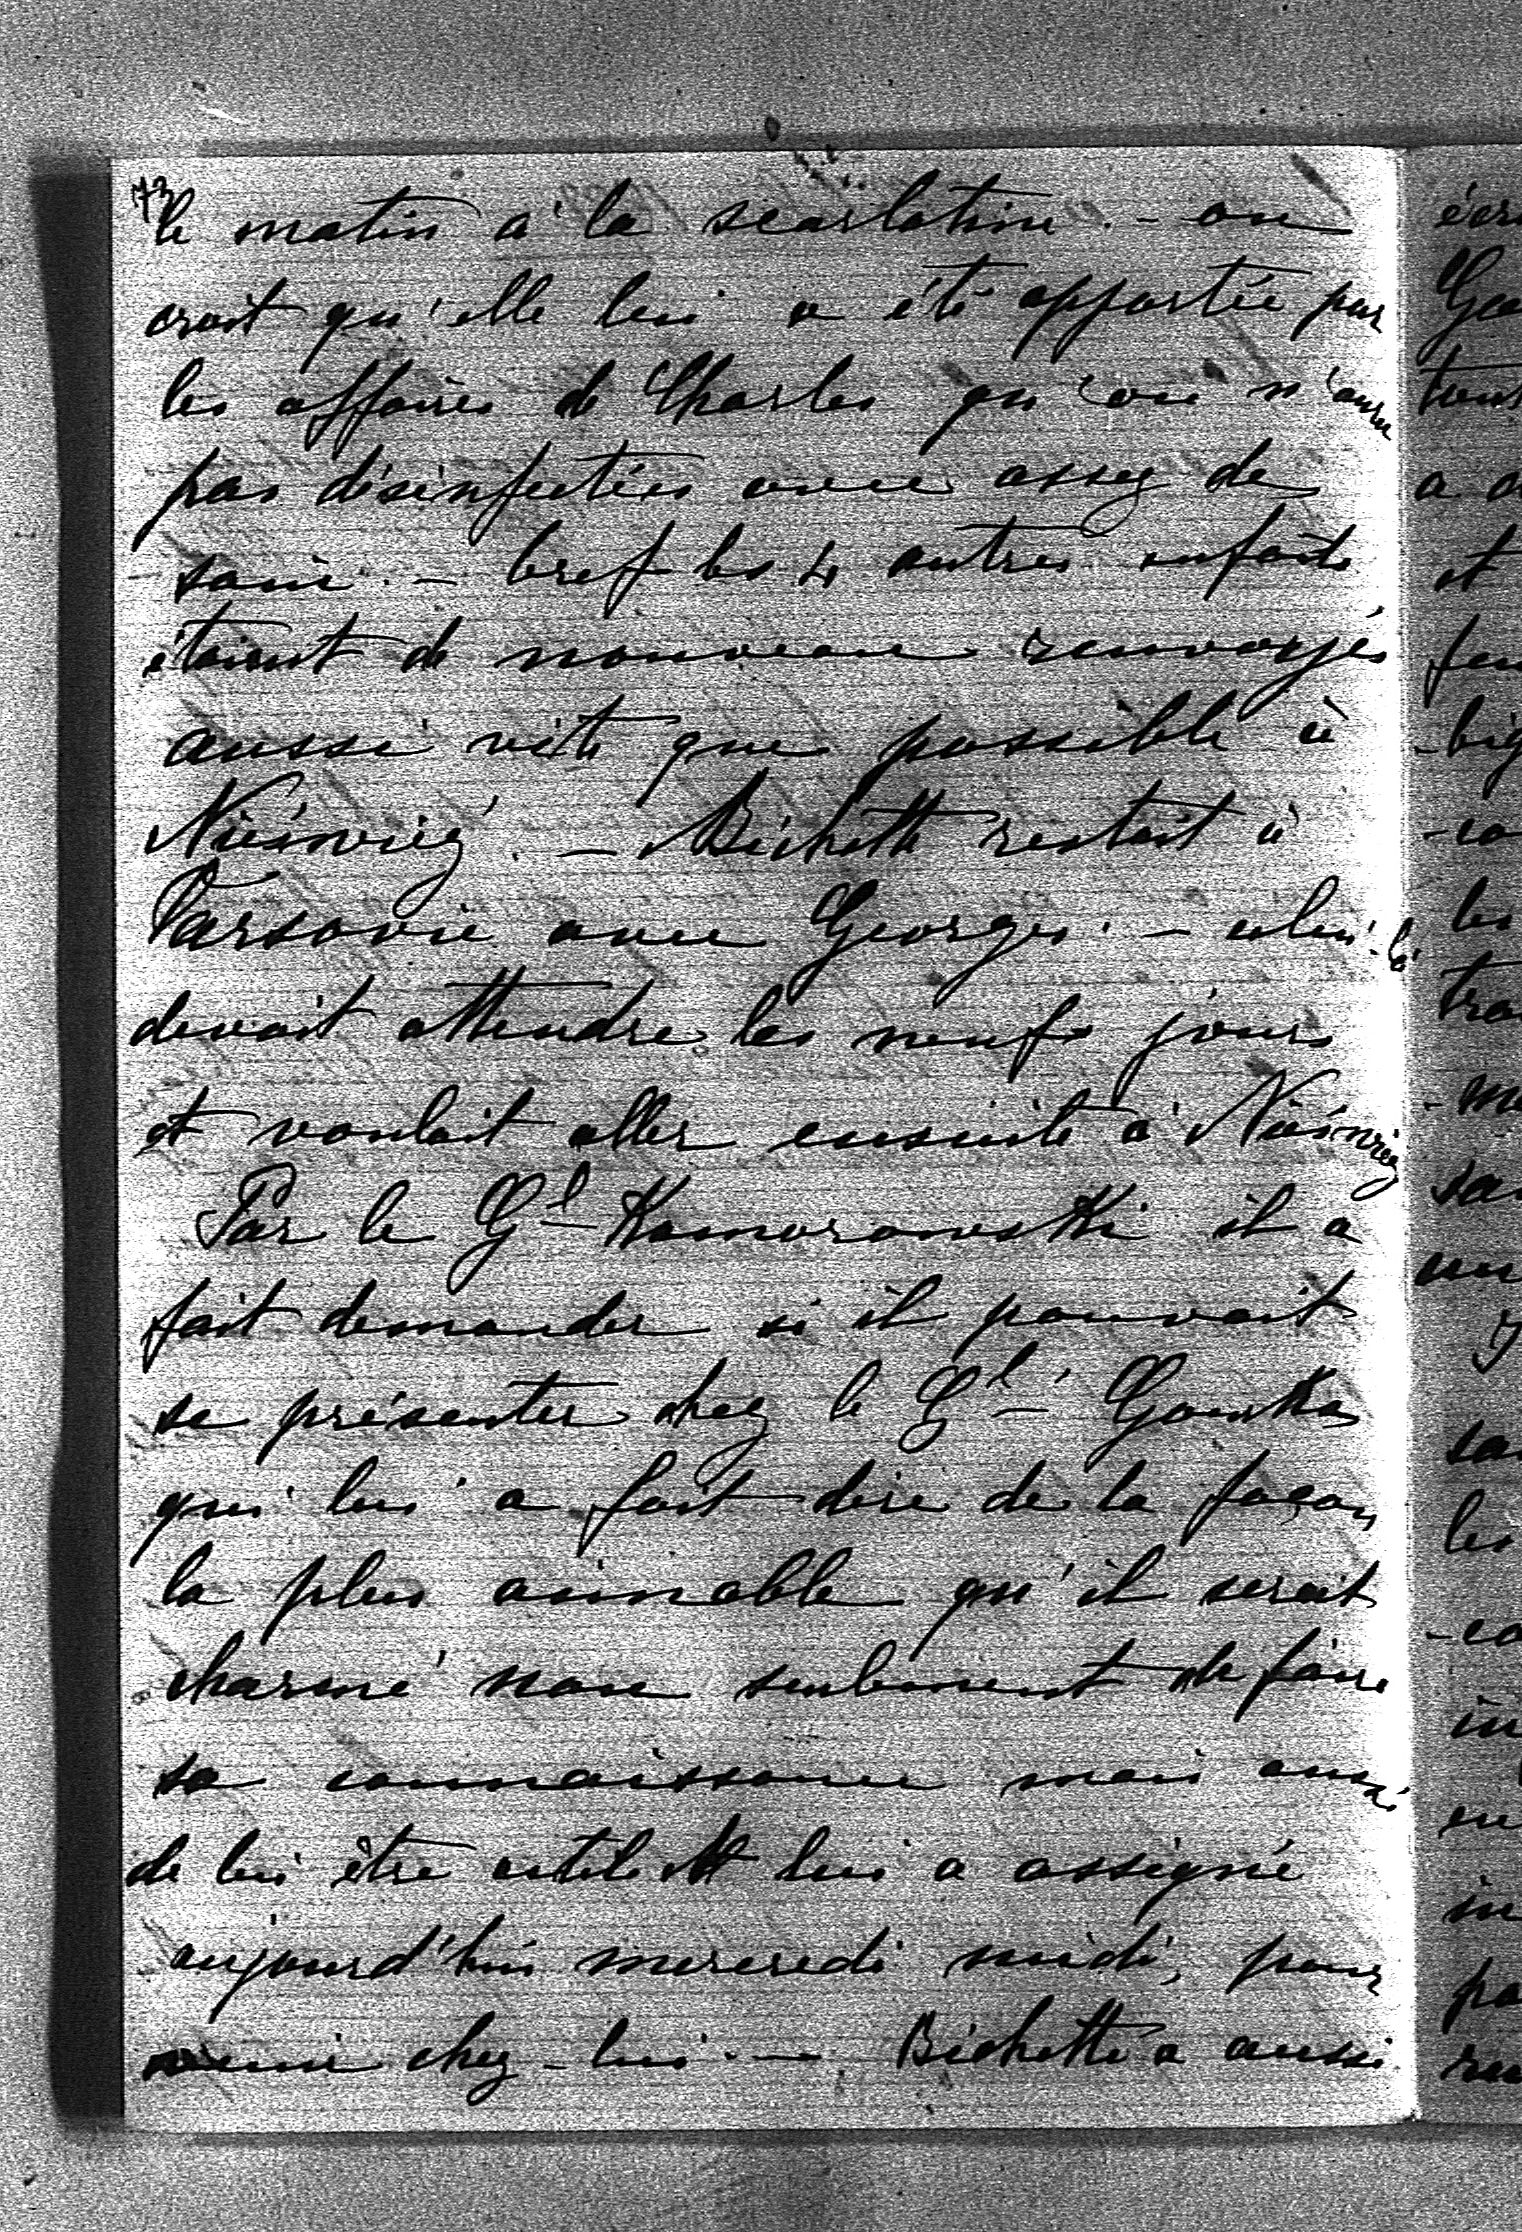 73
le matin a la scarlatine. - on
croit qu'elle lui a été apportée par
les affaires de Charles qu'on n'aura
pas désinfectées avec assez de
soin. - bref les 4 autres enfants
étaient de nouveau renvoyés
aussi vite que possible à
Nieswież. - Bichette restait à
Varsovie avec Georges. - celui-là
devait attendre les neufs jours
et voulait aller ensuite à Nieswież
Par le Gl Komorowski il a
fait demander si il pouvait
se présenter chez le Gl Gourko
qui lui a fait dire de la façon
la plus aimable qu'il serait
charmé non seulement de faire
sa connaissance mais aussi
de lui être utile et lui a assigné
aujourd'hui mercredi midi, pour
venir chez-lui. - Bichette a aussi